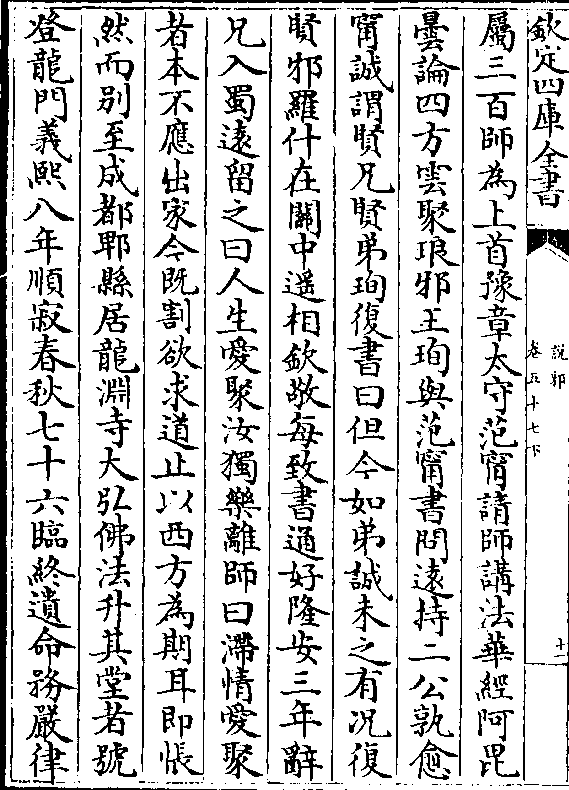 欽定四庫全書
說郛
卷五十七下
十一
屬三百師為上首豫章太守范甯請師講法華經阿毘
曇論四方雲聚琅邪王珣與范甯書問遠持二公孰愈
甯誠謂賢兄賢弟珣復書曰但令如弟誠未之有况復
賢邪羅什在關中遥相欽敬每致書通好隆安三年辭
兄入蜀遠留之曰人生愛聚汝獨樂離師曰滯情愛聚
者本不應出家今既割欲求道止以西方為期耳即悵
然而别至成都郫縣居龍淵寺大弘佛法升其堂者號
登龍門義熙八年順寂春秋七十六臨終遺命務嚴律